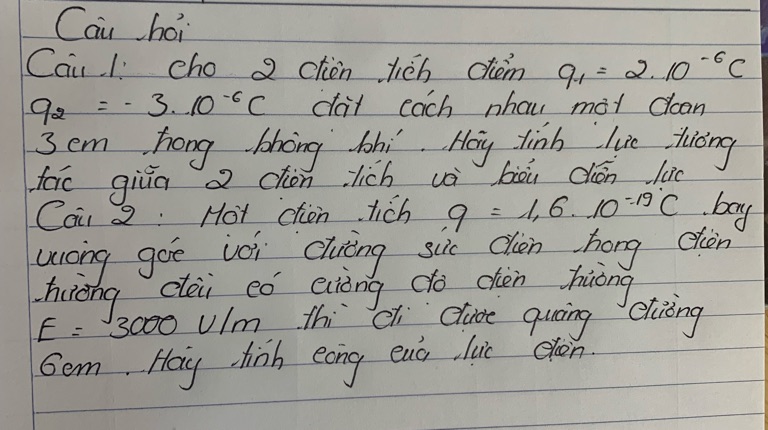 Câu hỏi
Câu 1: cho 2 điện tích điểm q₁ = 2.10⁻⁶C
q₂ = - 3.10⁻⁶C đặt cách nhau một đoạn
3 cm trong không khí. Hãy tính lực tương
tác giữa 2 điện tích và biểu diễn lực
Câu 2: Một điện tích q = 1,6.10⁻¹⁹C bay
vuông góc với đường sức điện trong điện
trường đều có cường độ điện trường
E = 3000 V/m thì đi được quãng đường
6cm. Hãy tính công của lực điện.